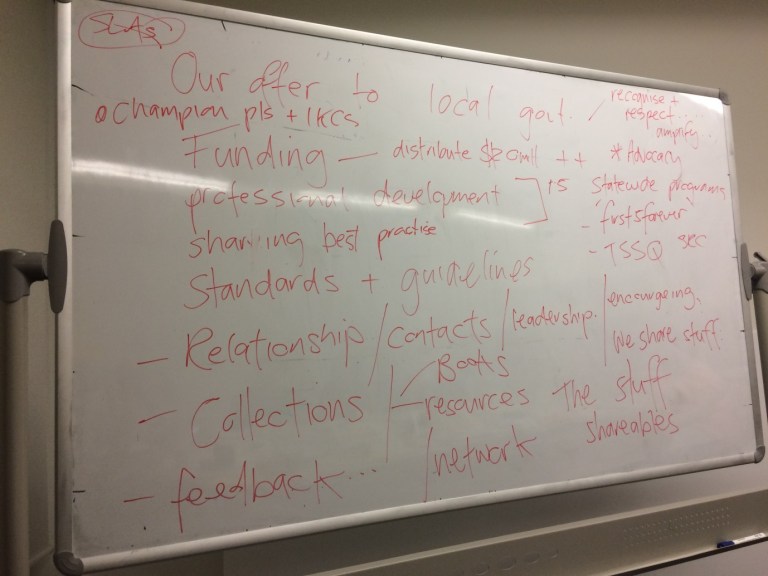 SLAs
Our offer to local govt. / recognise +
respect...
amplify...
champion pls + IKCs
Funding — distribute $ mill ++ * Advocacy
professional development ] 15 statewide programs
sharing best practise - 'firstsforever'
- TSSQ sec
Standards + guidelines
- Relationship / contacts / leadership. / encourgeing.
We share stuff.
- Collections / Books
- resources The stuff
shareables
- feedback... / network